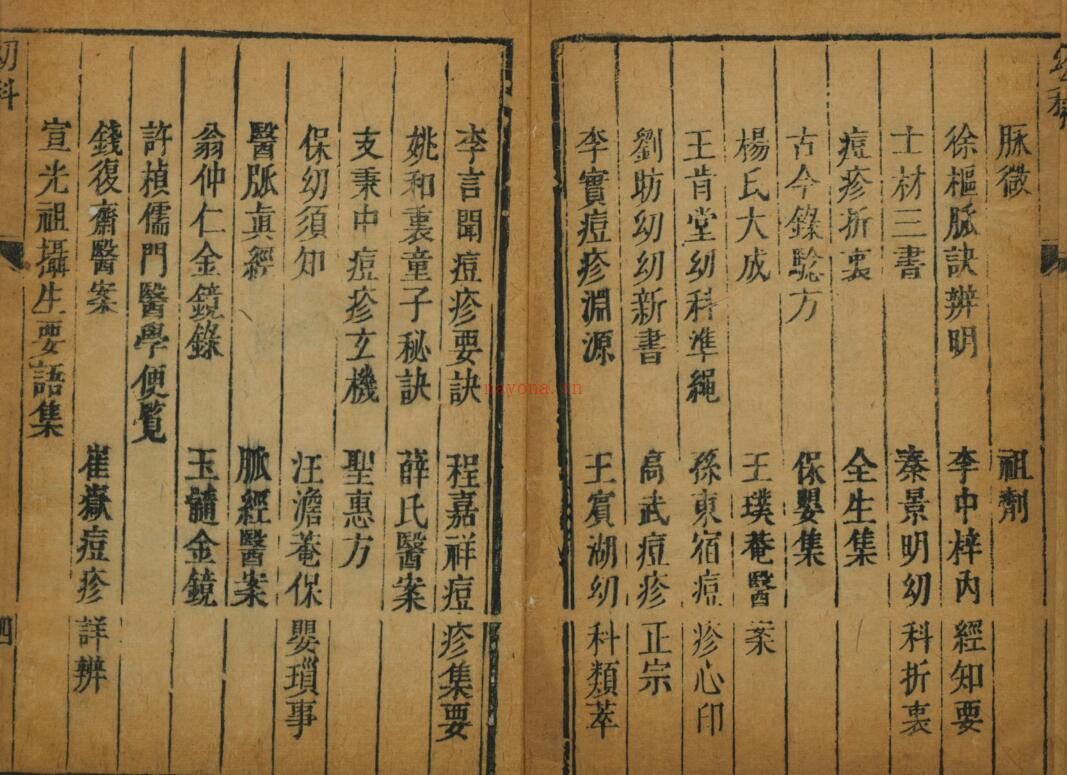 脉微 祖劑
徐樞脈訣辨明 李中梓內經知要
士材三書 秦景明幼科折衷
痘疹折衷 全生集
古今錄騐方 保嬰集
楊氏大成 王璞菴醫案
王肯堂幼科準繩 孫東宿痘疹心印
劉昉幼幼新書 高武痘疹正宗
李實痘疹淵源 王賓湖幼科類萃
李言聞痘疹要訣 程嘉祥痘疹集要
姚和衷童子秘訣 薛氏醫案
支秉中痘疹玄機 聖惠方
保幼須知 汪澹菴保嬰瑣事
醫脈眞經 脈經醫案
翁仲仁金鏡錄 玉髓金鏡
許楨儒門醫學便覧
錢復齋醫案 崔嶽痘疹詳辨
宣光祖攝生要語集
幼科
四
nayona.cn